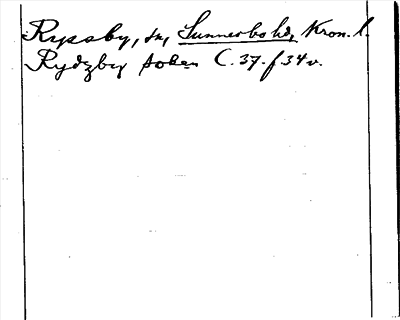 Ryssby, sn, Sunnerbo hd, Kron. l.
Rydzby soken C. 37. f 34 v.